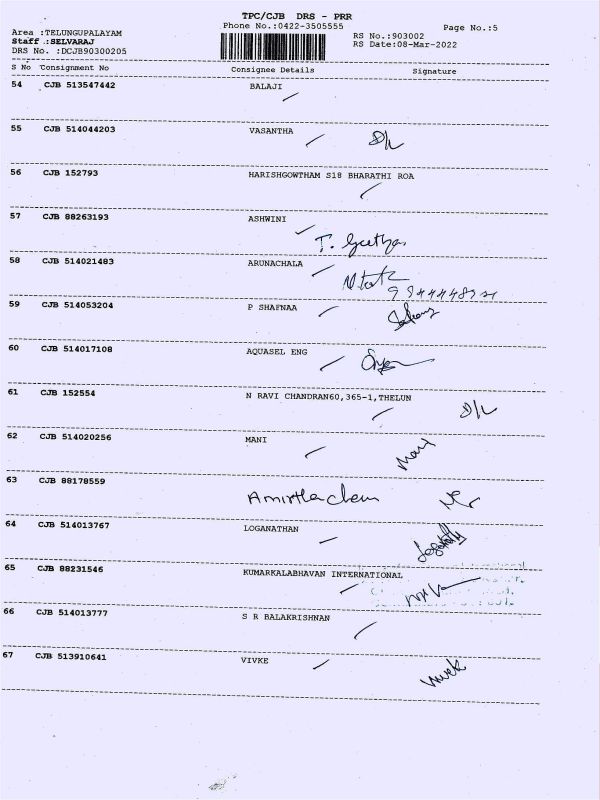 TPC/CJB DRS - PRR
Area :TELUNGUPALAYAM
Phone No.:0422-3505555
Page No.:5
Staff :SELVARAJ
RS No.:903002
DRS No. :DCJB90300205
RS Date:08-Mar-2022
S No Consignment No Consignee Details Signature
54 CJB 513547442 BALAJI
55 CJB 514044203 VASANTHA
D/L
56 CJB 152793 HARISHGOWTHAM S18 BHARATHI ROA
57 CJB 88263193 ASHWINI
T. Geetha
58 CJB 514021483 ARUNACHALA
59 CJB 514053204 P SHAFNAA
60 CJB 514017108 AQUASEL ENG
61 CJB 152554 N RAVI CHANDRAN60,365-1,THELUN
D/L
62 CJB 514020256 MANI
Mani
63 CJB 88178559
Amirtha chem
64 CJB 514013767 LOGANATHAN
65 CJB 88231546 KUMARKALABHAVAN INTERNATIONAL
66 CJB 514013777 S R BALAKRISHNAN
67 CJB 513910641 VIVKE
Vivek